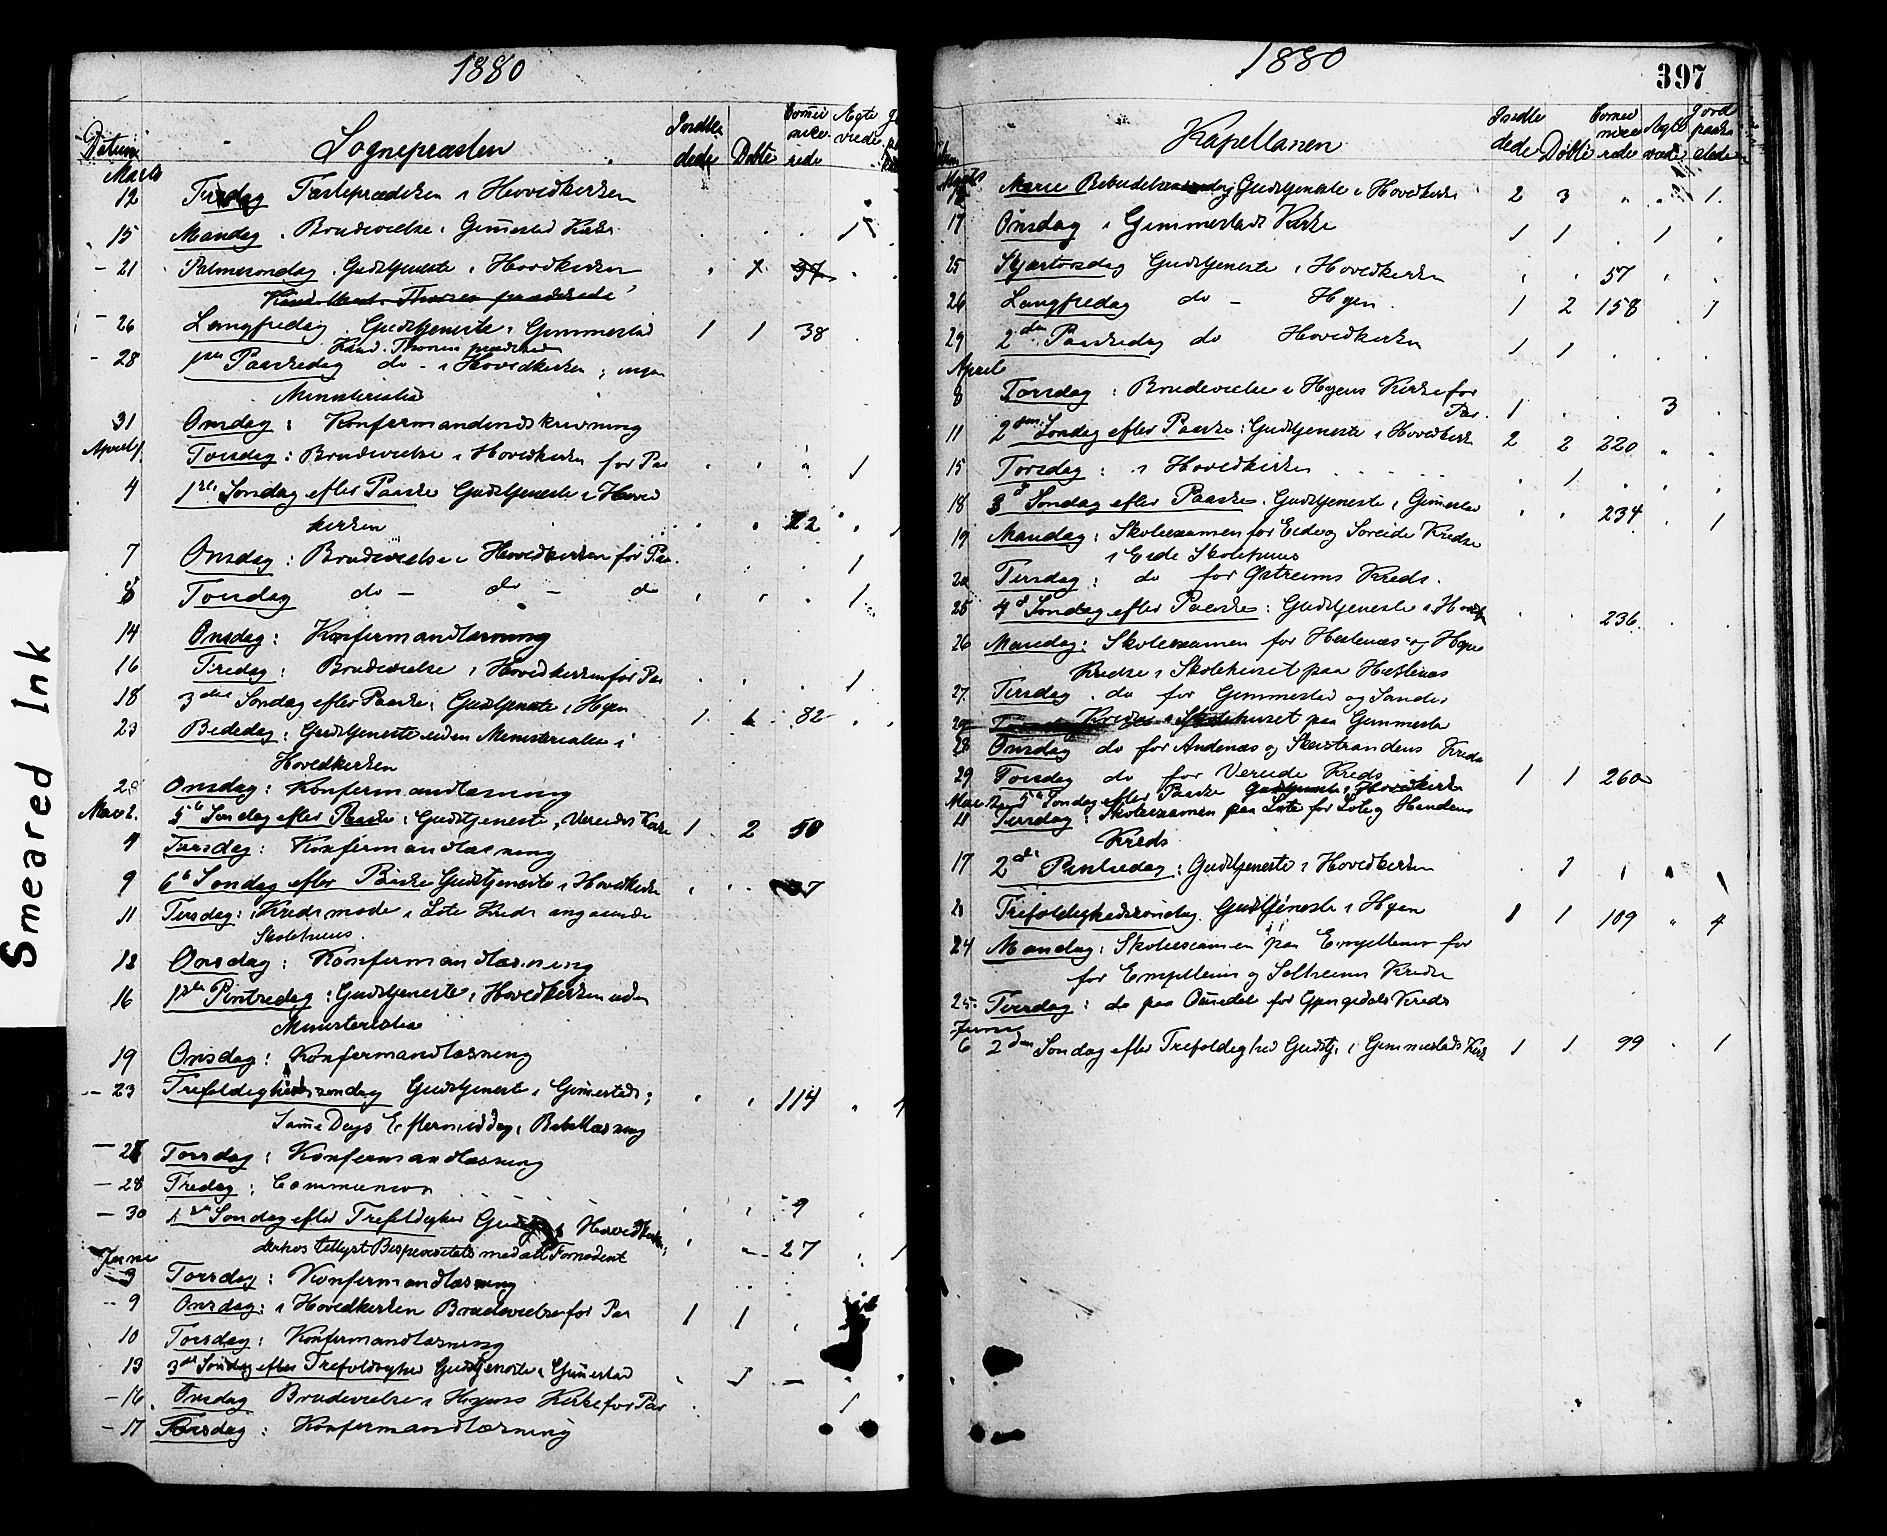 Smeared Ink
1880
Datum
Sognepræsten
Indledede
Døbte
Communicerede
Ægteviede
Marts
12 Fredag Fastepræken i Hovedkirken
15 Mandag. Brudevielse i Gimmestad Kirke 1
- 21 Palmesøndag. Gudstjeneste i Hovedkirken 37
Kand. Thorsen prædikede
- 26 Langfredag. Gudstjeneste i Gimmestad 1 1 38
Kand. Thorsen prædikede
- 28 1ste Paaskedag do - i Hovedkirken; ingen
Ministerialia
31 Onsdag: Konfirmandindskrivning
April 1 Torsdag: Brudevielse i Hovedkirken for Par 1
4 1ste Søndag efter Paaske Gudstjeneste i Hoved
kirken
7 Onsdag: Brudevielse i Hovedkirken for Par. 1
8 Torsdag do - do - do 1
14 Onsdag: Konfirmandlæsning
16 Fredag: Brudevielse i Hovedkirken for Par 1
18 3die Søndag efter Paaske: Gudstjeneste i Hyen 1 1 82
23 Bededag: Gudstjeneste uden Ministerialia i
Hovedkirken
28 Onsdag: Konfirmandlæsning
Mai 2. 5te Søndag efter Paaske: Gudstjeneste i Vereide Kirke 1 2 50
4 Tirsdag: Konfirmandlæsning
9 6te Søndag efter Paaske Gudstjeneste i Hovedkirke
11 Tirsdag: Kredsmøde i Lote Kreds angaaende
Skolehuus.
12 Onsdag: Konfirmandlæsning
16 1ste Pintsedag: Gudstjeneste i Hovedkirken uden
Ministerialia
19 Onsdag: Konfirmandlæsning
- 23 Trefoldighedssøndag Gudstjeneste i Gimmestad; 114
Samme Dags Eftermiddag Bibellæsning
- 27 Torsdag: Konfirmandlæsning
- 28 Fredag: Communion 9
- 30 1ste Søndag efter Trefoldighed Gudstj. i Hovedkirken;
derhos tillyst 27
Juni
3 Torsdag: Konfirmandlæsning
- 9 Onsdag: i Hovedkirken Brudevielse for Par 1 1
10 Torsdag: Konfirmandlæsning
13 3die Søndag efter Trefoldighed Gudstjeneste i Gimmestad
- 16. Onsdag Brudevielse i Hyens Kirke for Par 1
- 17 Torsdag: Konfirmandlæsning
1880
397
Datum
Kapellanen
Indledede
Døbte
Communicerede
Ægteviede
Jordpaakastede
Marts
Marie Bebudelsesdag Gudstjeneste i Hovedkirke 2 3 1.
17 Onsdag i Gimmestads Kirke 1 1 . 1
25 Skjærtorsdag Gudstjeneste i Hovedkirken 57
26 Langfredag do - Hyen. 1 2 158 1
29 2den Paaskedag do Hovedkirken 1 1
April
8 Torsdag: Brudevielse i Hyens Kirke for
Par. 1 3
11 2den Søndag efter Paaske: Gudstjeneste i Hovedkirk 2 2 220
15 Torsdag: i Hovedkirken 1
18 3d Søndag efter Paaske. Gudstjeneste i Gimmestad 234 . 1
19 Mandag: Skoleexamen for Eide og Soreide Kredse
i Eide Skolehuus
20 Tirsdag: do for Ostreims Kreds.
25 4d Søndag efter Paaske: Gudstjeneste i Hovedk 236
26 Mandag: Skoleexamen for Hestenæs og Hope
Kredse i Skolehuset paa Hestenæs
27 Tirsdag. do for Gimmestad og Sandes
Kredse i Skolehuset paa Gimmestad
28 Onsdag do for Andenæs og Skarstrandens Kreds
29 Torsdag do for Vereide Kreds 1 1 260
Mai 2den 5te Søndag efter Paaske Gudstjeneste i Hovedkirke
11 Tirsdag: Skoleexamen paa Lote for Lote og Hundens
Kreds
17 2den Pintsedag: Gudstjeneste i Hovedkirken 1
Trefoldighedssøndag. Gudstjeneste i Hyen 1 1 109 4
24 Mandag: Skoleexamen paa Emhjellen for
for Emhjellens og Solheims Kredse
25. Tirsdag: do paa Ommedal for Gjengedals Kreds
Juni
6 2den Søndag efter Trefoldighed Gudstj. i Gimmestads Kirk 1 1 99 . 1